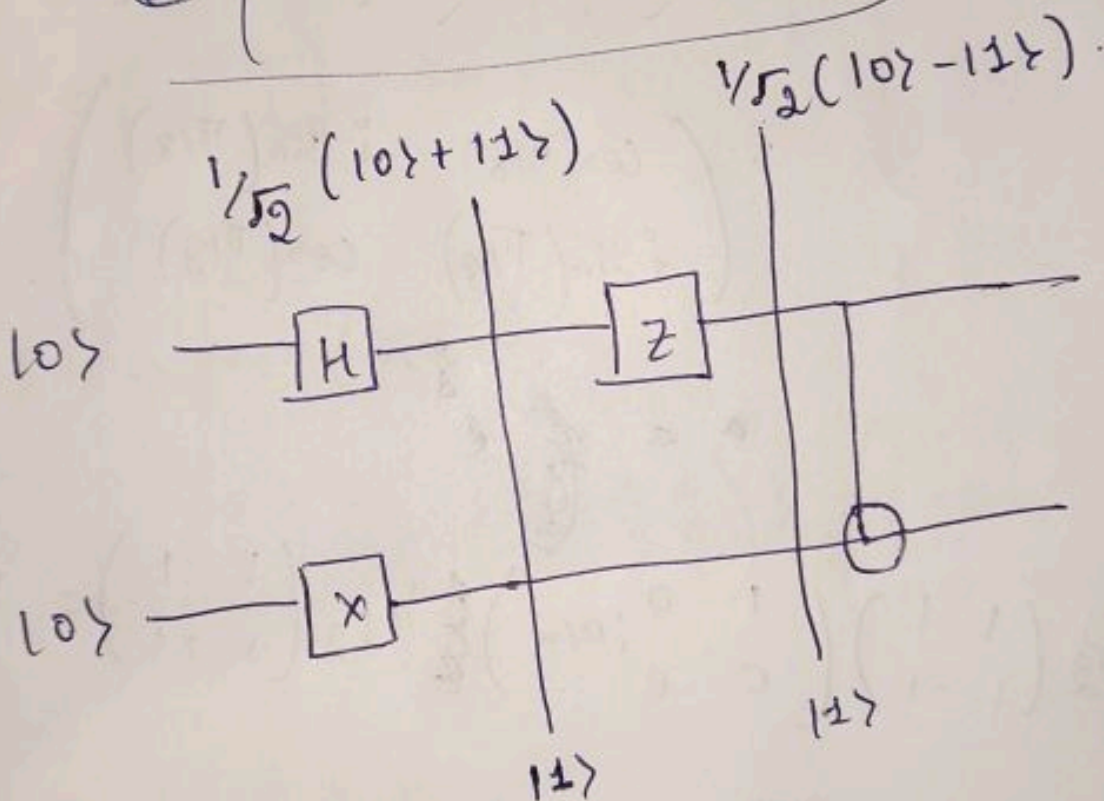 1/√2 (|0⟩ - |1⟩).
1/√2 (|0⟩ + |1⟩)
|0⟩ H Z
|0⟩ X
|1⟩
|1⟩